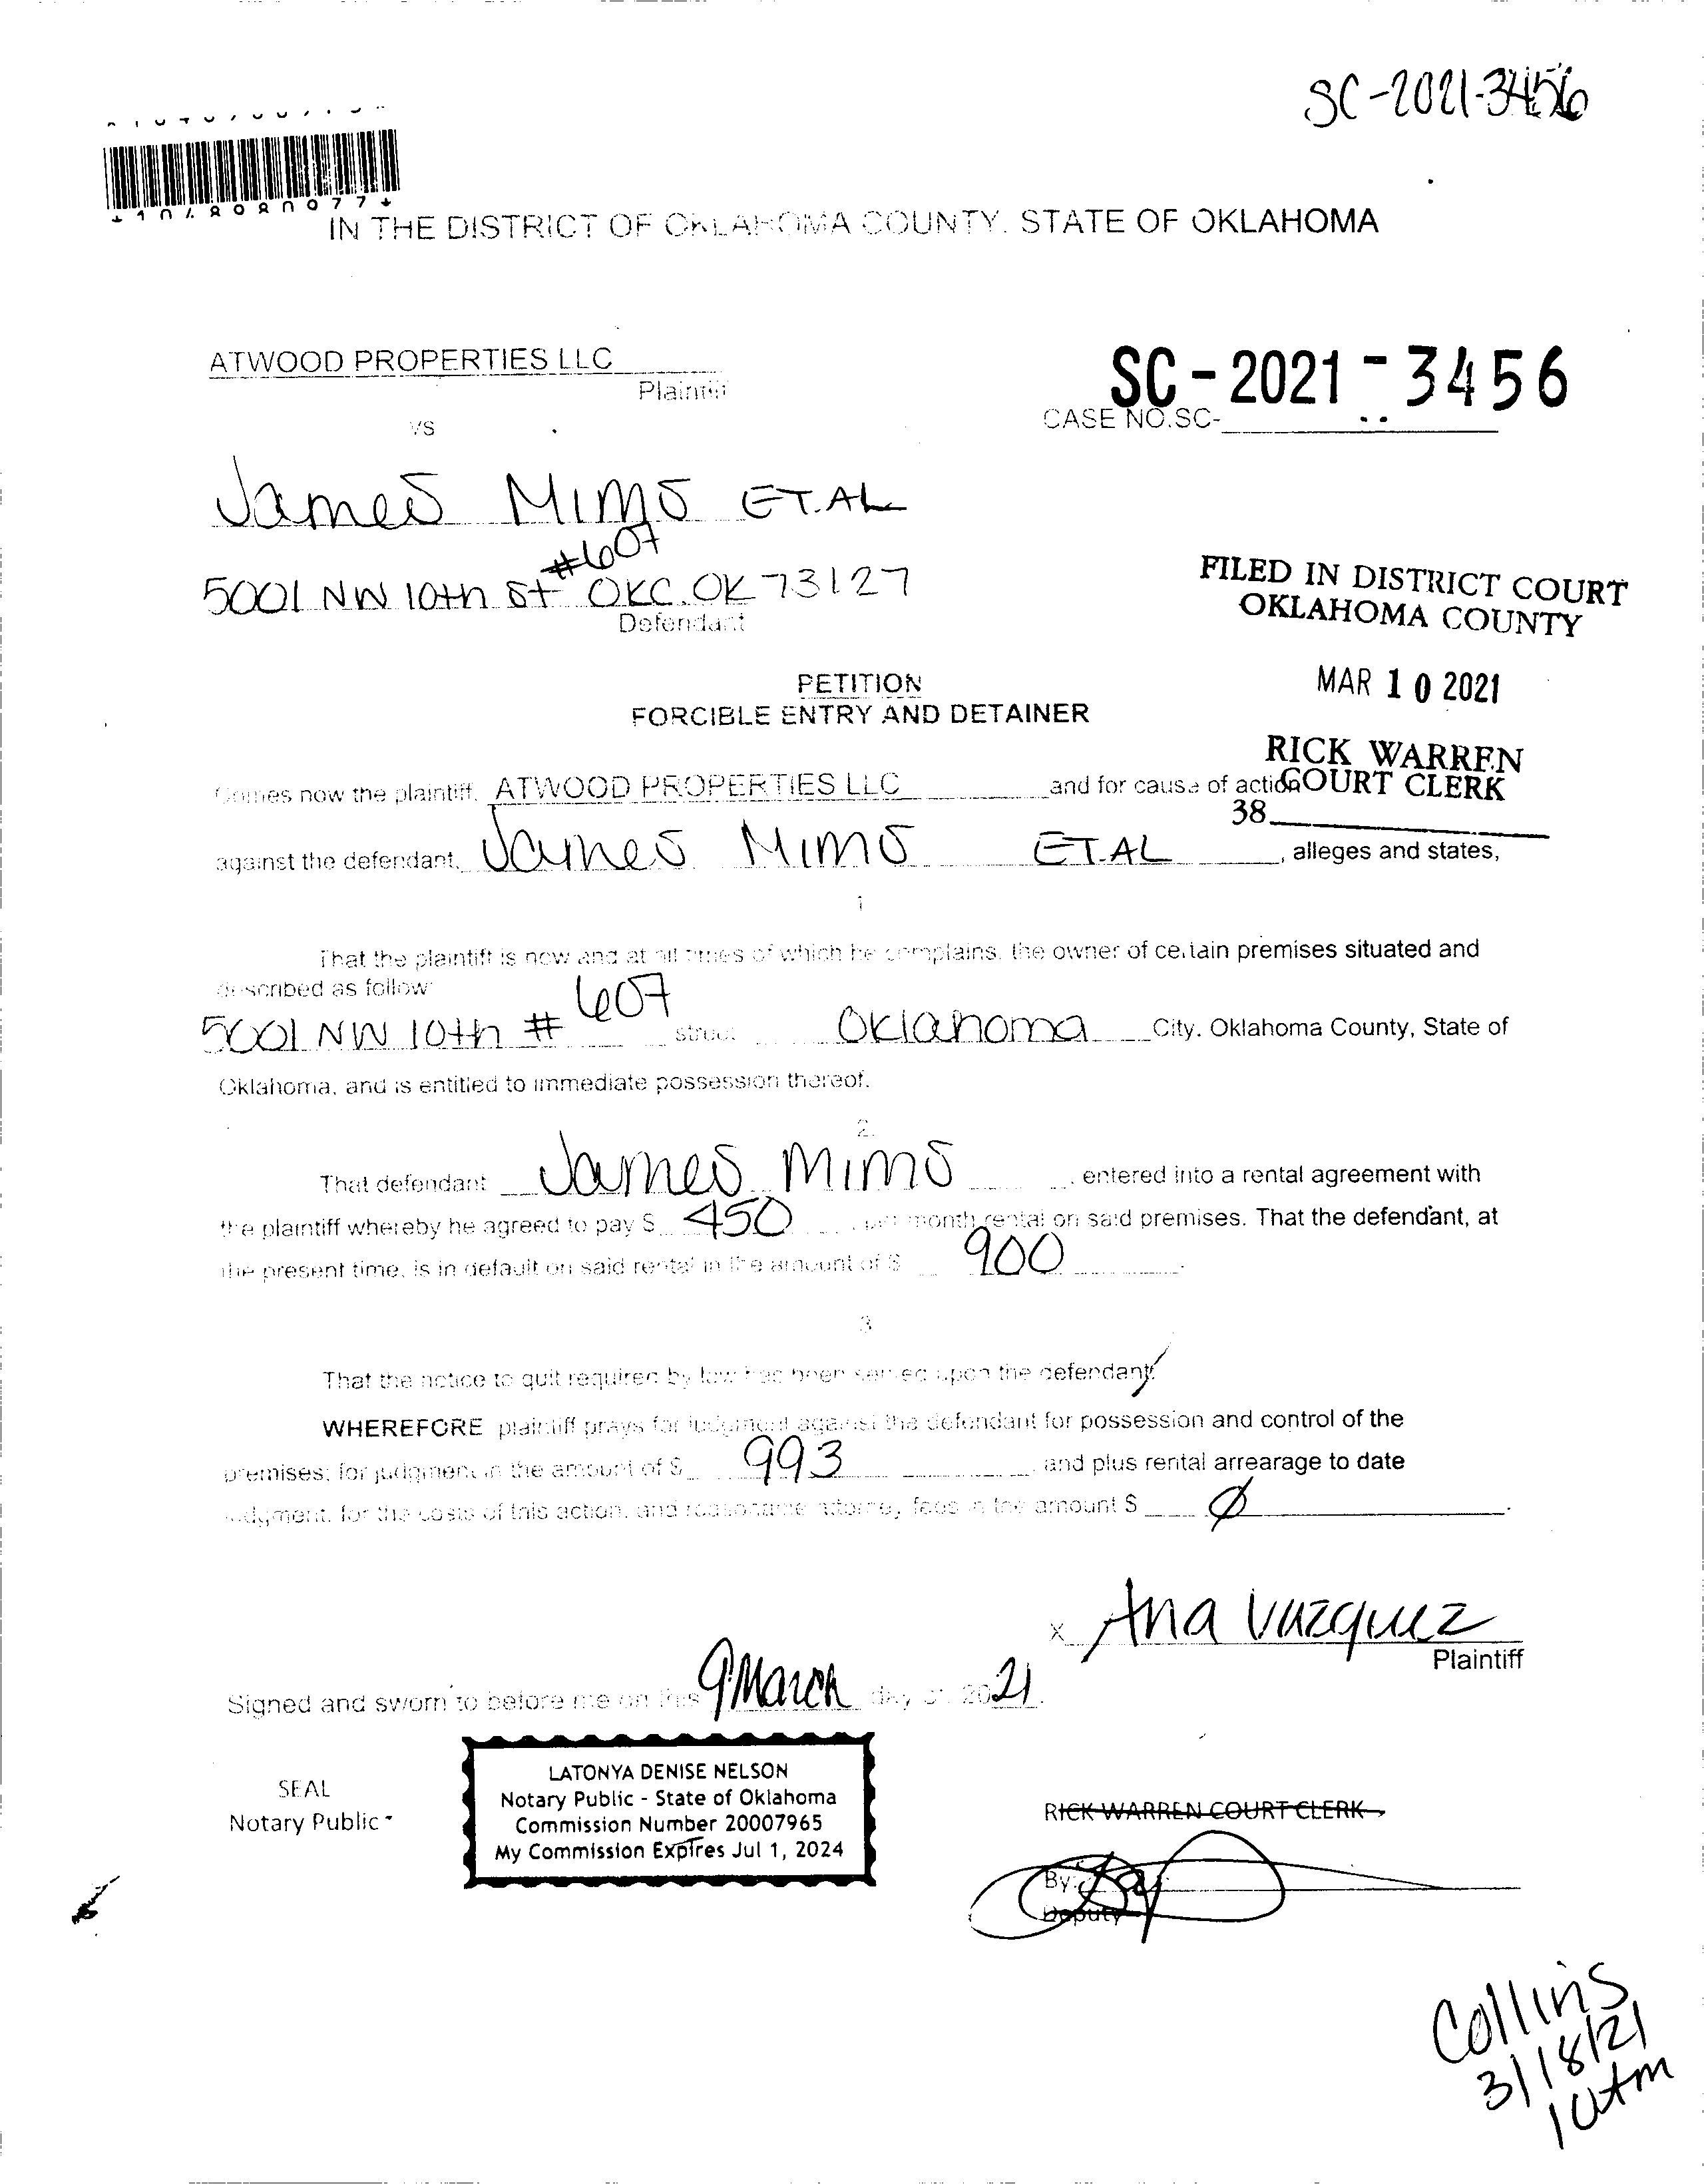 SC-2021-3456
IN THE DISTRICT OF OKLAHOMA COUNTY, STATE OF OKLAHOMA
ATWOOD PROPERTIES LLC
Plaintiff
vs
SC-2021-3456
CASE NO.SC-
James Mims ET.AL
#607
5001 NW 10th St OKC.OK 73127
Defendant
FILED IN DISTRICT COURT
OKLAHOMA COUNTY
MAR 10 2021
RICK WARREN
COURT CLERK
38
PETITION
FORCIBLE ENTRY AND DETAINER
Comes now the plaintiff, ATWOOD PROPERTIES LLC and for cause of action
against the defendant, James Mims ET.AL, alleges and states,
1
That the plaintiff is now and at all times of which he complains, the owner of certain premises situated and
described as follow:
5001 NW 10th # 607 street Oklahoma City, Oklahoma County, State of
Oklahoma, and is entitled to immediate possession thereof.
2.
That defendant James Mims, entered into a rental agreement with
the plaintiff whereby he agreed to pay $ 450 per month rental on said premises. That the defendant, at
the present time, is in default on said rental in the amount of $ 900.
3
That the notice to quit required by law has been served upon the defendant.
WHEREFORE plaintiff prays for judgment against the defendant for possession and control of the
premises; for judgment in the amount of $ 993 and plus rental arrearage to date
judgment, for the costs of this action, and reasonable attorney fees in the amount $ Ø.
x Ana Vazquez
Plaintiff
Signed and sworn to before me on this 9 March day of, 2021.
SEAL
Notary Public
LATONYA DENISE NELSON
Notary Public - State of Oklahoma
Commission Number 20007965
My Commission Expires Jul 1, 2024
RICK WARREN COURT CLERK
By:
Deputy
Collins
3/18/21